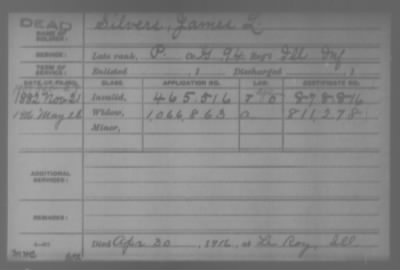 DEAD
NAME OF SOLDIER: Silvers, James L
SERVICE: Late rank, P. Co. G. 94 Reg't Ill Inf
TERM OF SERVICE: Enlisted , 1 Discharged , 1
DATE OF FILING. CLASS. APPLICATION NO. LAW. CERTIFICATE NO.
1882 Nov 21 Invalid, 465,516
1916 May 26 Widow, 1,066,863 811,278
Minor,
ADDITIONAL SERVICES:
REMARKS:
Died Apr 30, 1916, at Le Roy, Ill